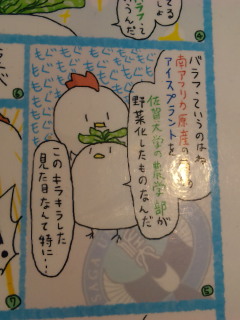 てる
しょう
バラフっていう
んだ
④
もぐもぐもぐもぐ
バラフっていうのはね
南アフリカ原産の
アイスプラントを
佐賀大学の農学部が
野菜化したものなんだ
このキラキラした
見た目なんて特に…
⑥
⑦
⑤
SAGA